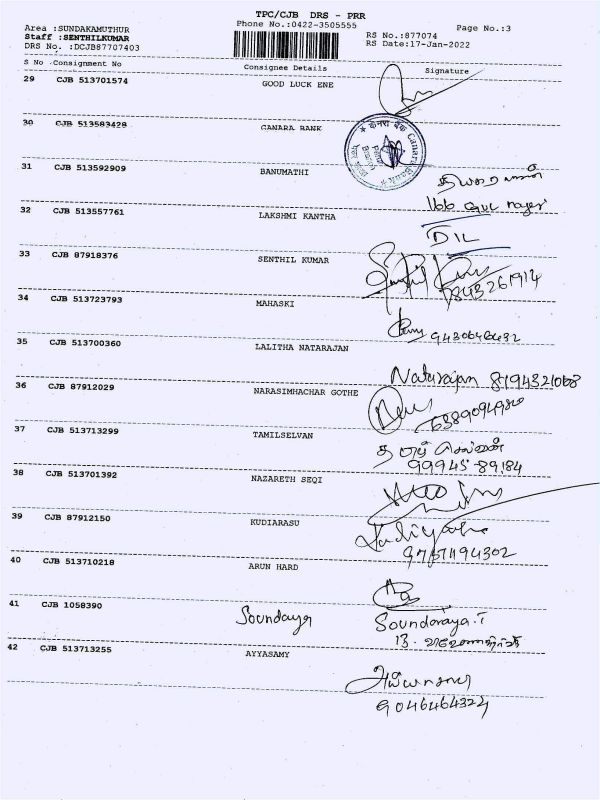 TPC/CJB DRS - PRR
Area :SUNDAKAMUTHUR Phone No.:0422-3505555 Page No.:3
Staff :SENTHILKUMAR RS No.:877074
DRS No. :DCJB87707403 RS Date:17-Jan-2022
S No Consignment No Consignee Details Signature
29 CJB 513701574 GOOD LUCK ENE
30 CJB 513583428 CANARA BANK
Canara Bank
31 CJB 513592909 BANUMATHI
32 CJB 513557761 LAKSHMI KANTHA
166
D1L
33 CJB 87918376 SENTHIL KUMAR
34 CJB 513723793 MAHASKI
9430646432
35 CJB 513700360 LALITHA NATARAJAN
Natarajan 8194321068
36 CJB 87912029 NARASIMHACHAR GOTHE
37 CJB 513713299 TAMILSELVAN
99945-89184
38 CJB 513701392 NAZARETH SEQI
39 CJB 87912150 KUDIARASU
40 CJB 513710218 ARUN HARD
41 CJB 1058390 Soundarya Soundaraya.T
13.
42 CJB 513713255 AYYASAMY
அய்யாசாமி
9046464324